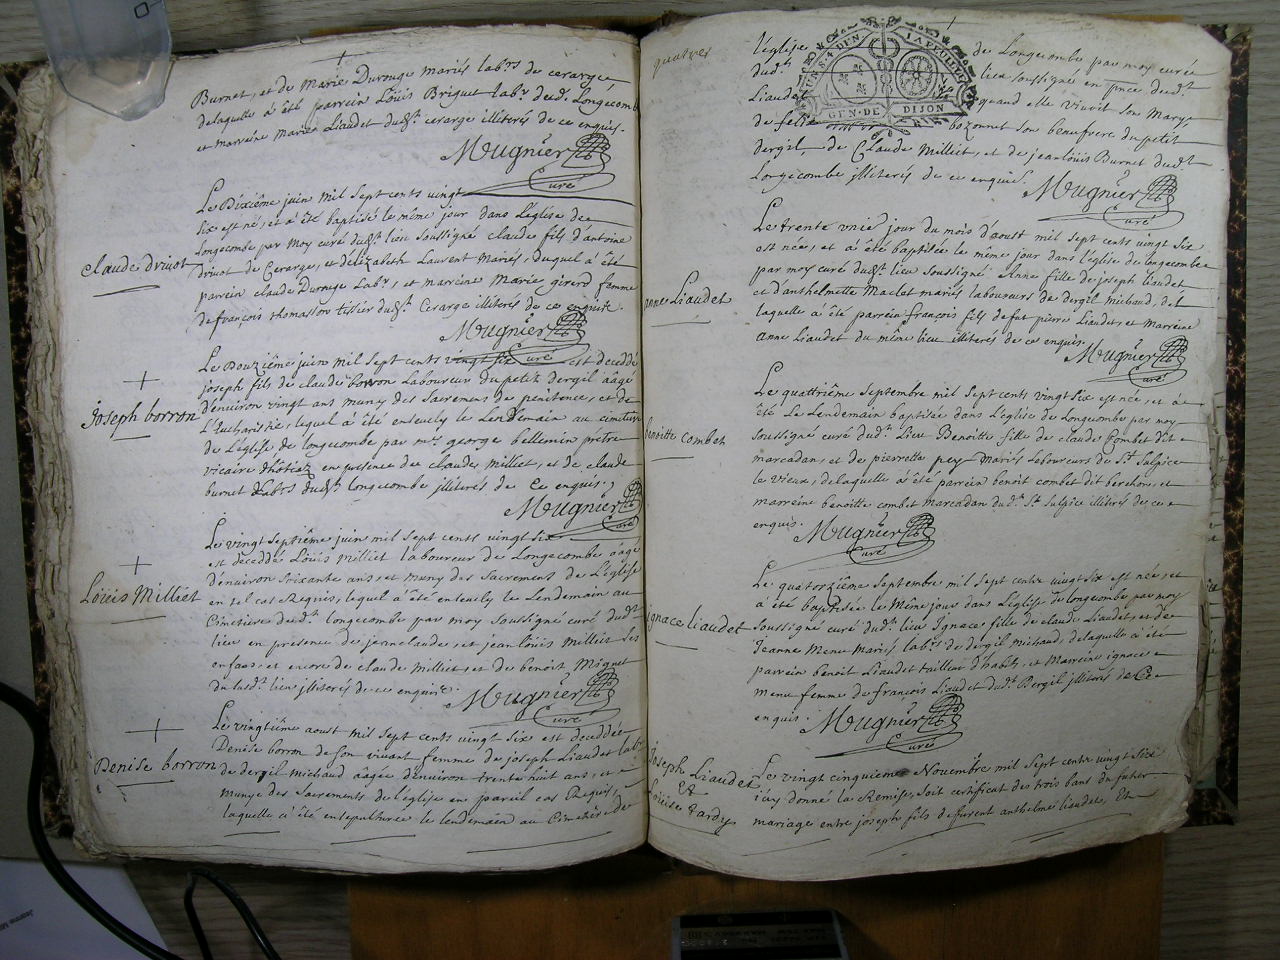 Burnet, et de Marie Durouge mariés lab.rs de cerarge
delaquelle a été parrein Loüis Briguet lab.r dud. Longecomb
et marreine marie Liaudet dud.t cerarge illiterés de ce enquis.
Mugnier
Curé
Le Dixiéme juin mil sept cents vingt
six est né, et a été baptisé le même jour dans L'église de
Longecombe par moy curé dud.t lieu soussigné claude fils d'antoine
claude drivot
drivot de Cerarge, et d'élizabeth Laurent Mariés, duquel a été
parrein claude Durouge Lab.r, et marreine Marie girerd femme
de françois thomasson tissier dud.t Cerarge illiterés de ce enquis.
Mugnier
Curé
Le Douziéme juin mil sept cents vingt six est decedé
joseph fils de claude borron Laboureur du petit dergil aâgé
Joseph borron
d'environ vingt ans muny des Sacremens de pénitence, et de
L'Eucharistie, lequel a été enseuely le Lendemain au cimetiere
de L'Eglise de longecombe par m.re george bellemin prêtre
vicaire d'hotiaz en presence de claude milliet, et de claude
burnet Lab.rs dud.t longecombe illiterés de ce enquis.
Mugnier
Curé
Le vingt septiéme juin mil sept cents vingt six
est decedé Loüis milliet laboureur de Longecombe aâgé
d'environ soixante ans, et muny des Sacremens de L'église
Loüis Milliet
en tel cas Requis, lequel a été enseuely le Lendemain au
Cimetiere dud.t longecombe par moy soussigné curé dud.t
lieu en presence de jean claude, et jean loüis milliet ses
enfans, et encore de claude milliet, et de benoit Miguet
du susd.t lieu illiterés de ce enquis.
Mugnier
Curé
Le vingtiéme aoust mil sept cents vingt six est decedée
Denise borron de son vivant femme de joseph Liaudet lab.r
Denise borron
de dergil michaud aâgée d'environ trente huit ans, et
munye des Sacrements de l'église en pareil cas Requis,
laquelle a été ensepulturée le lendemain au Cimetiere de
GEN. DE DIJON
l'église de Longecombe par moy curé
dud.t lieu soussigné en p.nce dud.t
Liaudet quand elle vivoit son Mary,
de bozonnet son beaufrere du petit
dergil, de Claude Milliet, et de jean loüis Burnet dud.t
Longecombe illiterés de ce enquis.
Mugnier
Curé
Le trente unié jour du mois d'aoust mil sept cents vingt six
est née, et a été baptisée le même jour dans l'église de longecombe
par moy curé dud.t lieu soussigné Anne fille de joseph Liaudet
anne Liaudet
et d'anthelmette Maclet mariés laboureurs de dergil michaud, de
laquelle a été parrein françois fils de fut pierre Liaudet, et Marreine
Anne Liaudet du même lieu illiterés de ce enquis.
Mugnier
Curé
Le quatriéme Septembre mil sept cents vingt six est née, et a
été Le Lendemain baptisée dans L'église de Longecombe par moy
benoitte combet
soussigné curé dud.t Lieu Benoitte fille de claude Combet dit
marcadan, et de pierrette pey Mariés Laboureurs de S.t Sulpice
le vieux, delaquelle a été parrein benoit combet dit berchon, et
marreine benoitte combet Marcadan dud.t S.t Sulpice illiterés de ce
enquis.
Mugnier
Curé
Le quatorziéme Septembre mil sept cents vingt six est née, et
a été baptisée le Même jour dans L'église de longecombe par moy
ignace liaudet
soussigné curé dud.t lieu Ignace fille de claude Liaudet, et de
Jeanne Menu Mariés lab.rs de dergil michaud, delaquelle a été
parrein benoit Liaudet tailleur d'habits, et Marreine ignace
menu femme de françois Liaudet dud.t Dergil illiterés de Ce
enquis.
Mugnier
Curé
Joseph Liaudet
et
Loüise Tardy
Le vingt cinquiéme Novembre mil sept cents vingt six
j'ay donné la Remise, soit certificat des trois bans du futur
mariage entre joseph fils de furent anthelme liaudet, Et